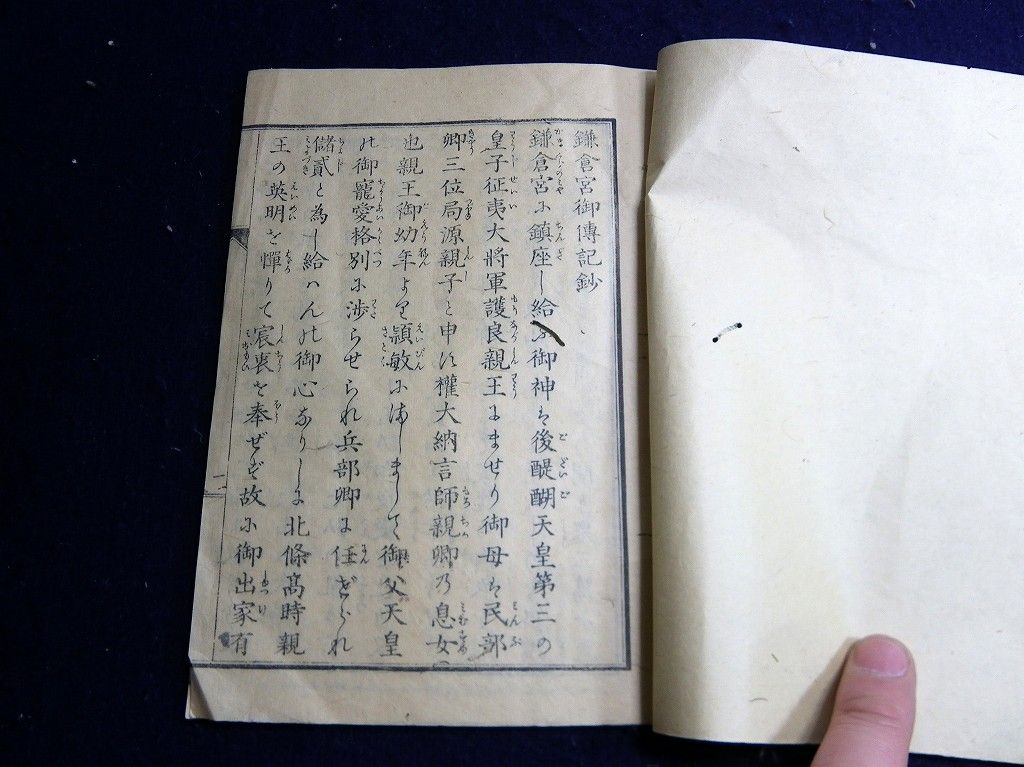 鎌倉宮御傳記鈔
鎌倉宮に鎮座し給ふ御神は後醍醐天皇第三の
皇子征夷大將軍護良親王にませり御母は民部
卿三位局源親子と申す權大納言師親卿乃息女
也親王御幼年より穎敏にましまして御父天皇
の御寵愛格別に渉らせられ兵部卿に任ぜられ
儲貳と為し給はんの御心なりしに北條高時親
王の英明を憚りて宸衷を奉ぜず故に御出家有